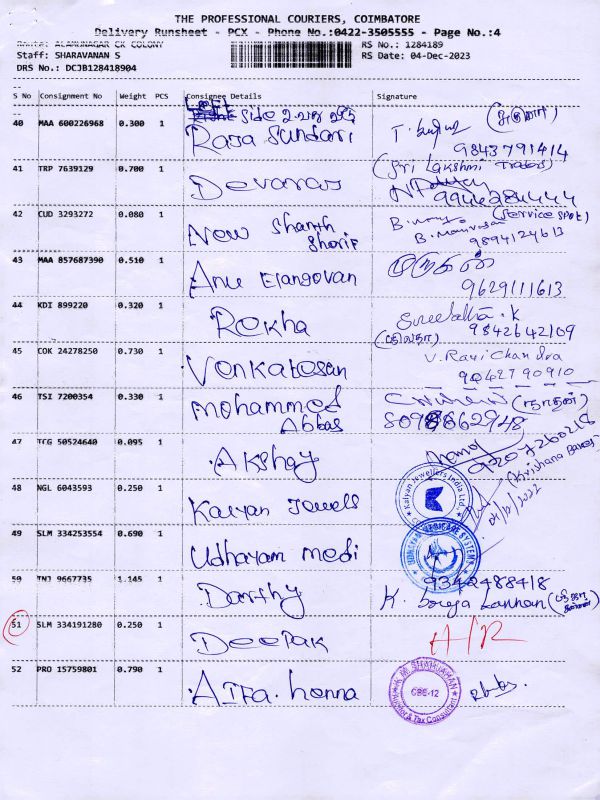 THE PROFESSIONAL COURIERS, COIMBATORE
Delivery Runsheet - PCX - Phone No.:0422-3505555 - Page No.:4
Route: ALAMUNAGAR CK COLONY RS No.: 1284189
Staff: SHARAVANAN S RS Date: 04-Dec-2023
DRS No.: DCJB128418904
S No Consignment No Weight PCS Consignee Details Signature
Left Side
40 MAA 600226968 0.300 1 Raja Sundari
9843791414
41 TRP 7639129 0.700 1 Devaraj (Sri Lakshmi Traders)
9944284444
42 CUD 3293272 0.080 1 New Shanth Sharif (Service Spot)
9894124613
43 MAA 857687390 0.510 1 Anu Elangovan முருகன்
9629111613
44 KDI 899220 0.320 1 Rekha Sreelatha . K
9842642109
45 COK 24278250 0.730 1 Venkatesan V. Ravi Chandra
9042790910
46 TSI 7200354 0.330 1 Mohammed Abbas (நாதன்)
8098862948
47 TCG 50524640 0.095 1 Akshay
9207260218
(Krishana Bakes)
48 NGL 6043593 0.250 1 Kalyan Jewels Kalyan Jewellers India Ltd.
04/12/2022
49 SLM 334253554 0.690 1 Udhayam Medi
50 TNJ 9667735 1.145 1 9342488418
51 SLM 334191280 0.250 1 Deepak A/R
52 PRO 15759801 0.790 1 K.M. SHAHJAHAN
Auditor & Tax Consultant
CBE-12